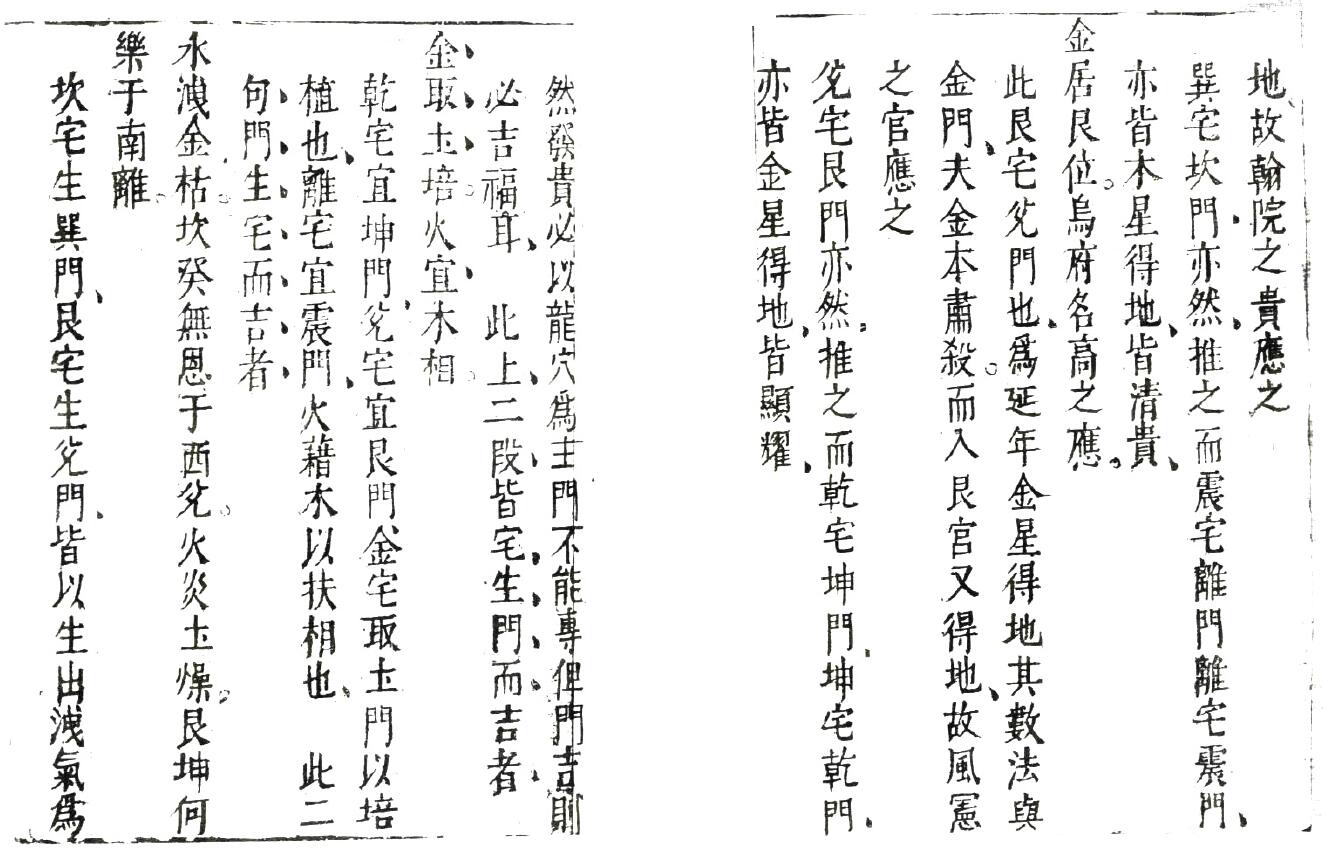 地、故翰院之貴應之
巽宅坎門、亦然、推之而震宅離門離宅震門、
亦皆木星得地、皆清貴、
金居艮位。烏府名高之應。
此艮宅兊門也、爲延年金星得地其數法與
金門、夫金本肅殺。而入艮宮又得地、故風憲
之官應之
兊宅艮門亦然、推之而乾宅坤門、坤宅乾門、
亦皆金星得地、皆顯耀、
然發貴必以龍穴爲主門不能專俾門吉則
必吉福耳、 此上二段皆宅生門而吉者
金取土培。火宜木相。
乾宅宜坤門、兊宅宜艮門金宅取土門以培
植也、離宅宜震門、火藉木以扶相也、 此二
句門生宅而吉者
水洩金枯。坎癸無恩于西兊。火炎土燥。艮坤何
樂于南離。
坎宅生巽門、艮宅生兊門、皆以生出洩氣爲